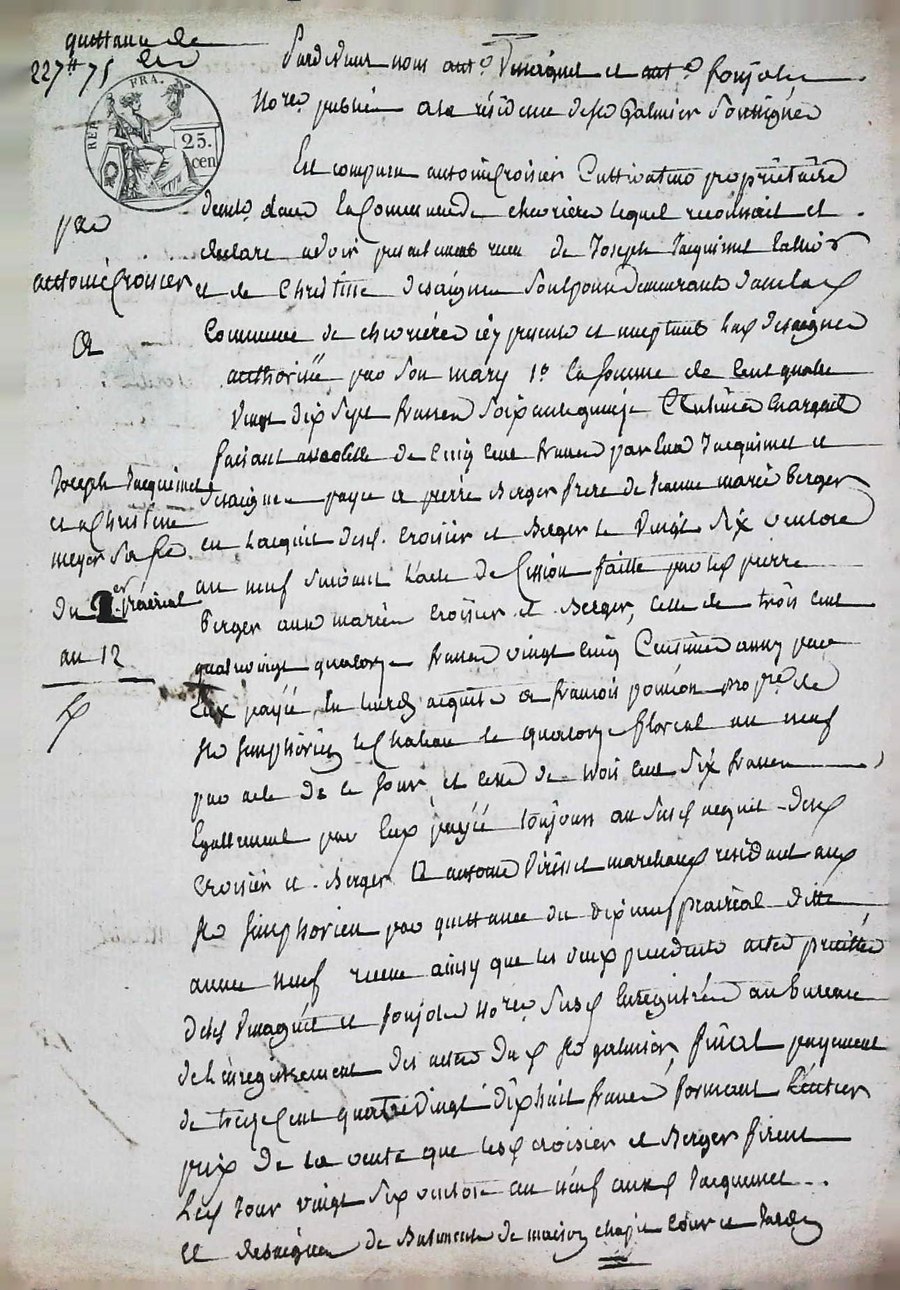 quittance de
227tt 75
REP. FRA.
25.
cen
par
antoine Croisier
a
Joseph Jacquemet
et a Christine
du 1er prairial
an 12
Pardevant nous ant.e et ant.e foujols
Nores publics a la résidence de St Galmier Soussignés
Est comparu antoine Croisier Cultivateur propriétaire
demt dans la Commune de chevrières lequel reconnait et
declare avoir presentement recu de Joseph Jacquemet
et de Christine desaignes Son Epouse demeurants dans la
Commune de chevrières icy presents et acceptants lad desaignes
authorisée par Son mary 1o la somme de Cent quatre
Vingt dix Sept francs Soixante quinze Centimes
faisant avec celle de Cinq Cent francs par Eux Jacquemet et
desaignes payée a pierre Berger frere de Jeanne marie berger
en Lacquit desd. Croisier et Berger le Vingt Six ventose
an neuf Suivant Lacte de Cession faitte par led pierre
Berger aux mariés Croisier et Berger, celle de trois cent
quatrevingt quatorze francs vingt cinq Centimes aussy par
Eux payée En leurd acquit a francois poncon propre de
St Simphorien le Chateau le quatorze floreal an neuf
par acte de ce Jour, et celle de trois Cent Six francs
Egallement par Eux payée toujours au Susd acquit desd
Croisier et Berger a antoine marchand residant aud
St Simphorien par quittance du dix neuf prairéal ditte
année neuf recue ainsy que les deux precedents actes precittés
desd et foujols Nores Susd Enregistrés au bureau
de L'enregistrement des actes dud St galmier, final payement
de treize cent quatre Vingt dix huit francs formant L'entier
prix de la vente que lesd Croisier et Berger firent
Led Jour vingt Six ventose an neuf auxd Jacquemet
et desaignes de Batiments de maison chapit Cour et Jardin